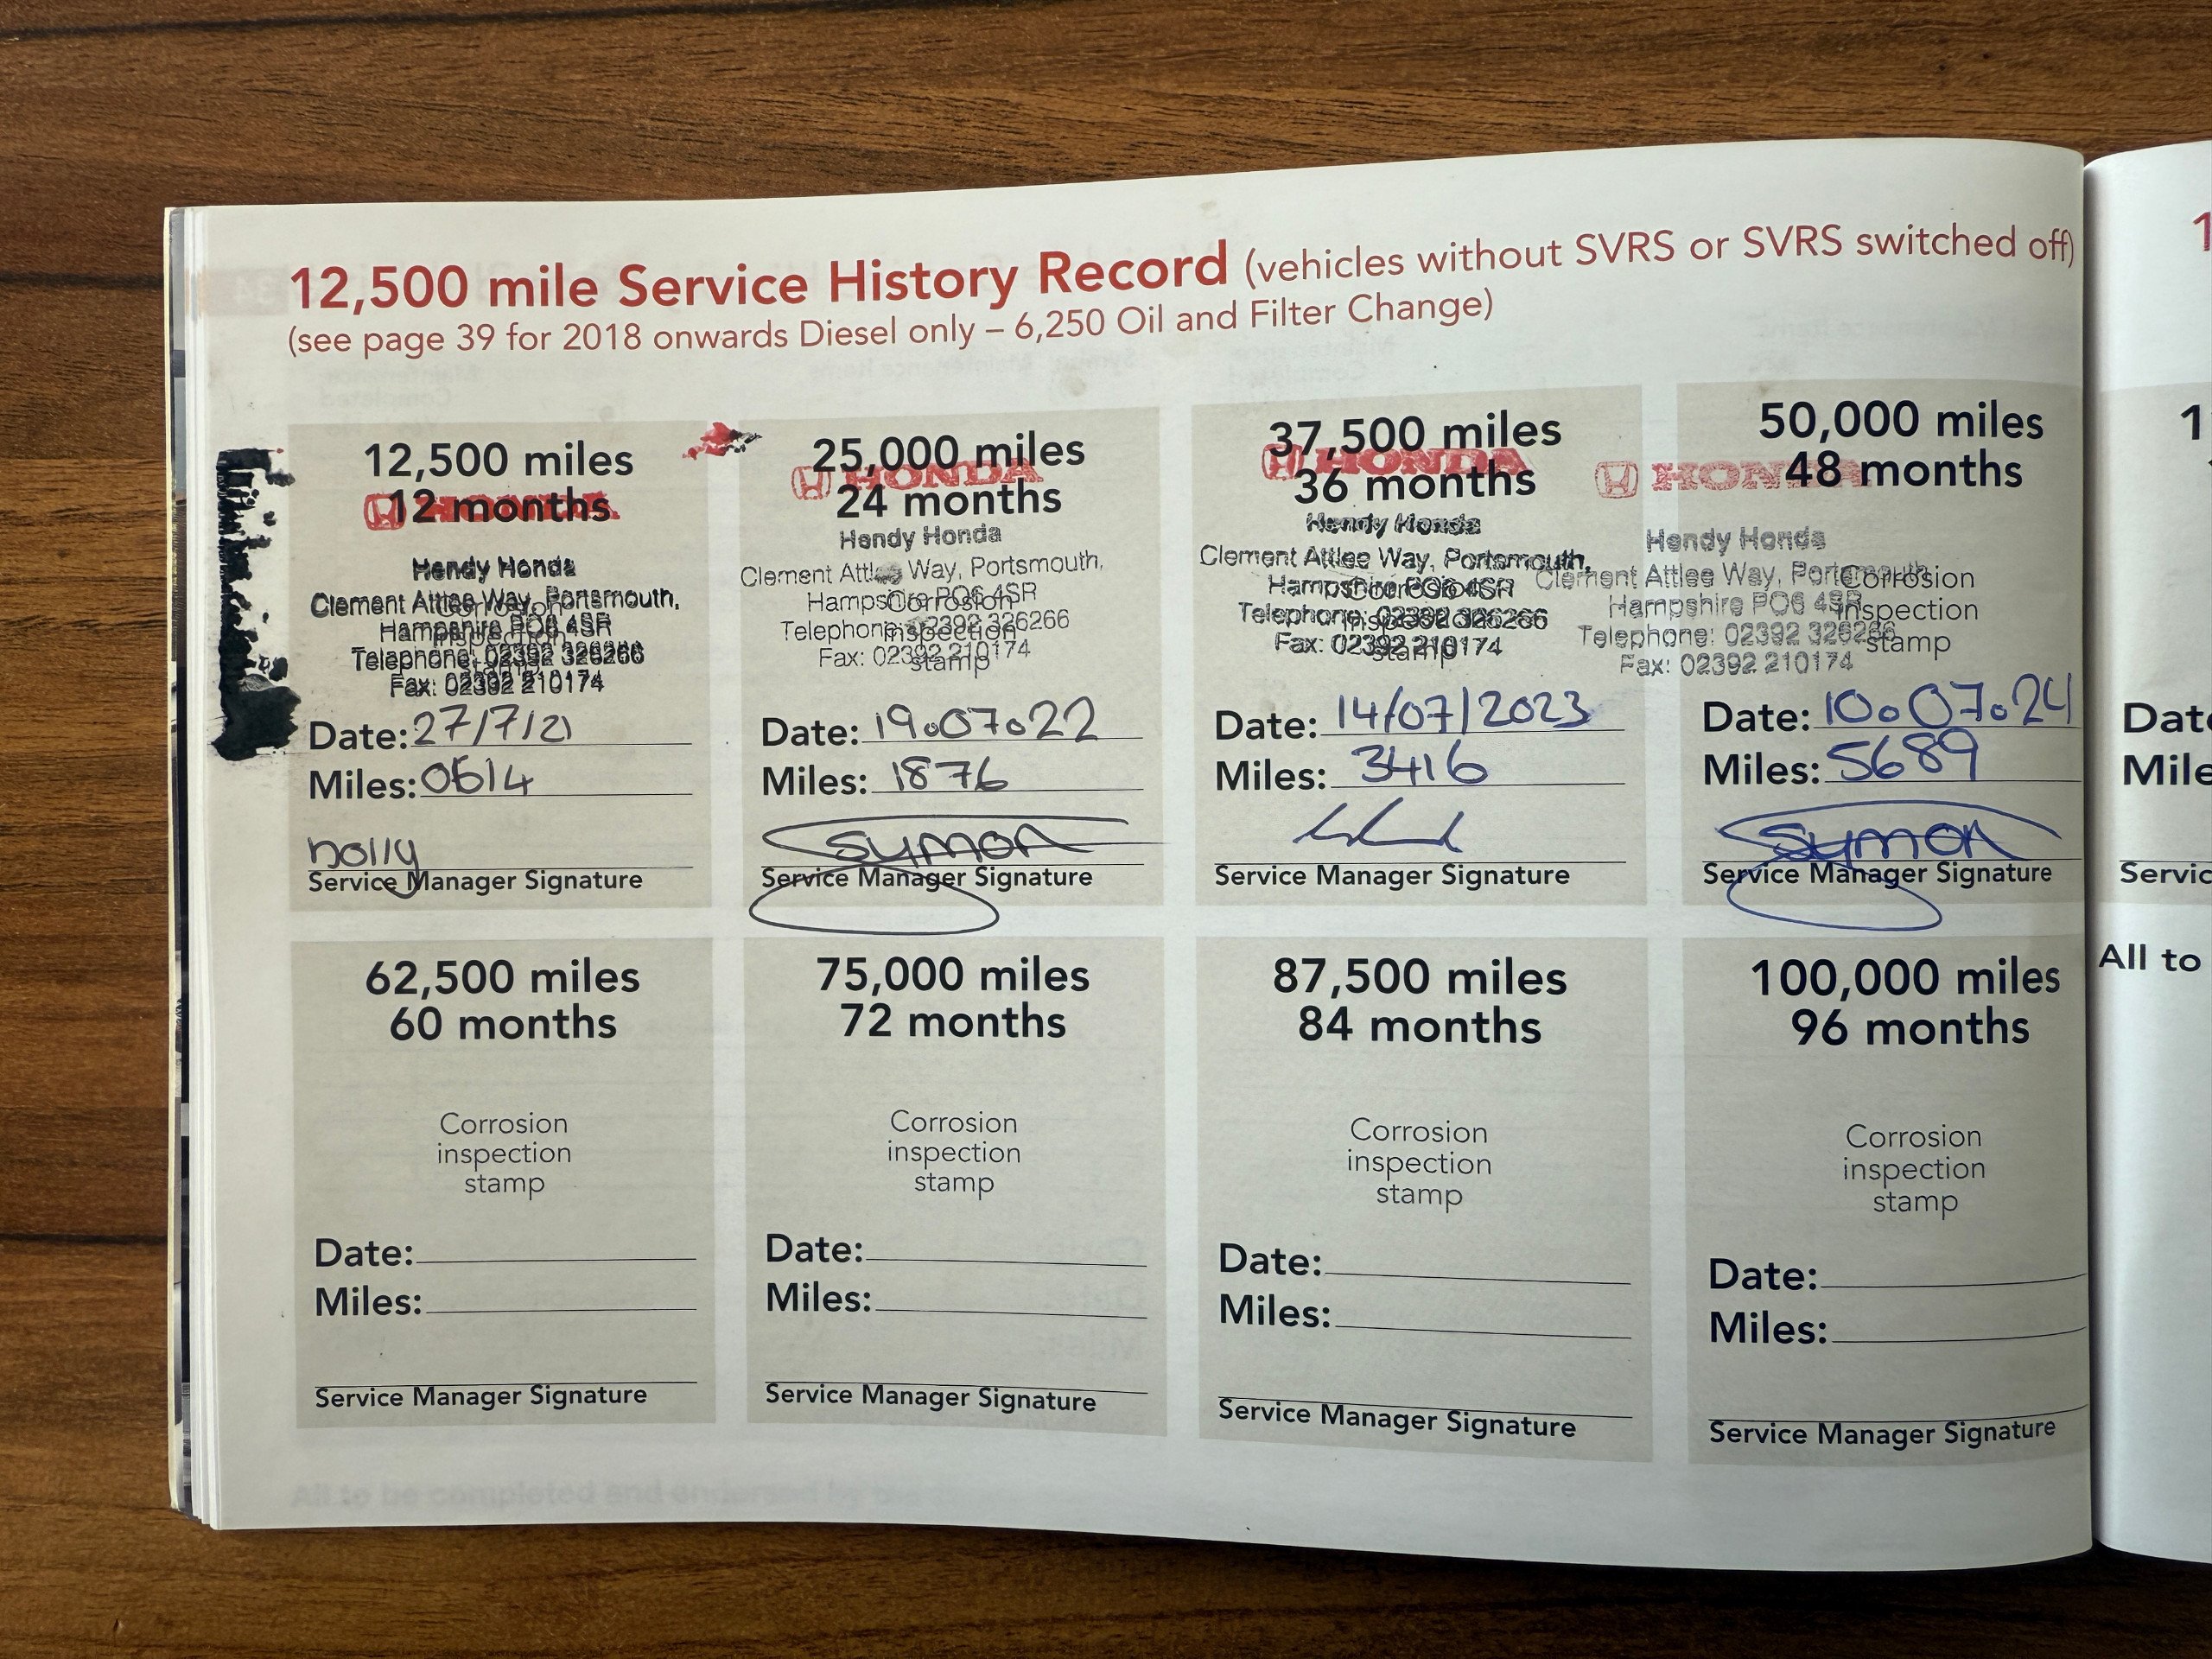 12,500 mile Service History Record (vehicles without SVRS or SVRS switched off)
(see page 39 for 2018 onwards Diesel only – 6,250 Oil and Filter Change)
12,500 miles
12 months
HONDA
Hendy Honda
Clement Attlee Way, Portsmouth,
Hampshire PO6 4SR
Telephone: 02392 326266
Fax: 02392 210174
Corrosion
inspection
stamp
Date: 27/7/21
Miles: 0614
holly
Service Manager Signature
25,000 miles
24 months
HONDA
Hendy Honda
Clement Attlee Way, Portsmouth,
Hampshire PO6 4SR
Telephone: 02392 326266
Fax: 02392 210174
Corrosion
inspection
stamp
Date: 19.07.22
Miles: 1876
Symon
Service Manager Signature
37,500 miles
36 months
HONDA
Hendy Honda
Clement Attlee Way, Portsmouth,
Hampshire PO6 4SR
Telephone: 02392 326266
Fax: 02392 210174
Corrosion
inspection
stamp
Date: 14/07/2023
Miles: 3416
Service Manager Signature
50,000 miles
48 months
HONDA
Hendy Honda
Clement Attlee Way, Portsmouth,
Hampshire PO6 4SR
Telephone: 02392 326266
Fax: 02392 210174
Corrosion
inspection
stamp
Date: 10.07.24
Miles: 5689
Symon
Service Manager Signature
62,500 miles
60 months
Corrosion
inspection
stamp
Date:
Miles:
Service Manager Signature
75,000 miles
72 months
Corrosion
inspection
stamp
Date:
Miles:
Service Manager Signature
87,500 miles
84 months
Corrosion
inspection
stamp
Date:
Miles:
Service Manager Signature
100,000 miles
96 months
Corrosion
inspection
stamp
Date:
Miles:
Service Manager Signature
All to